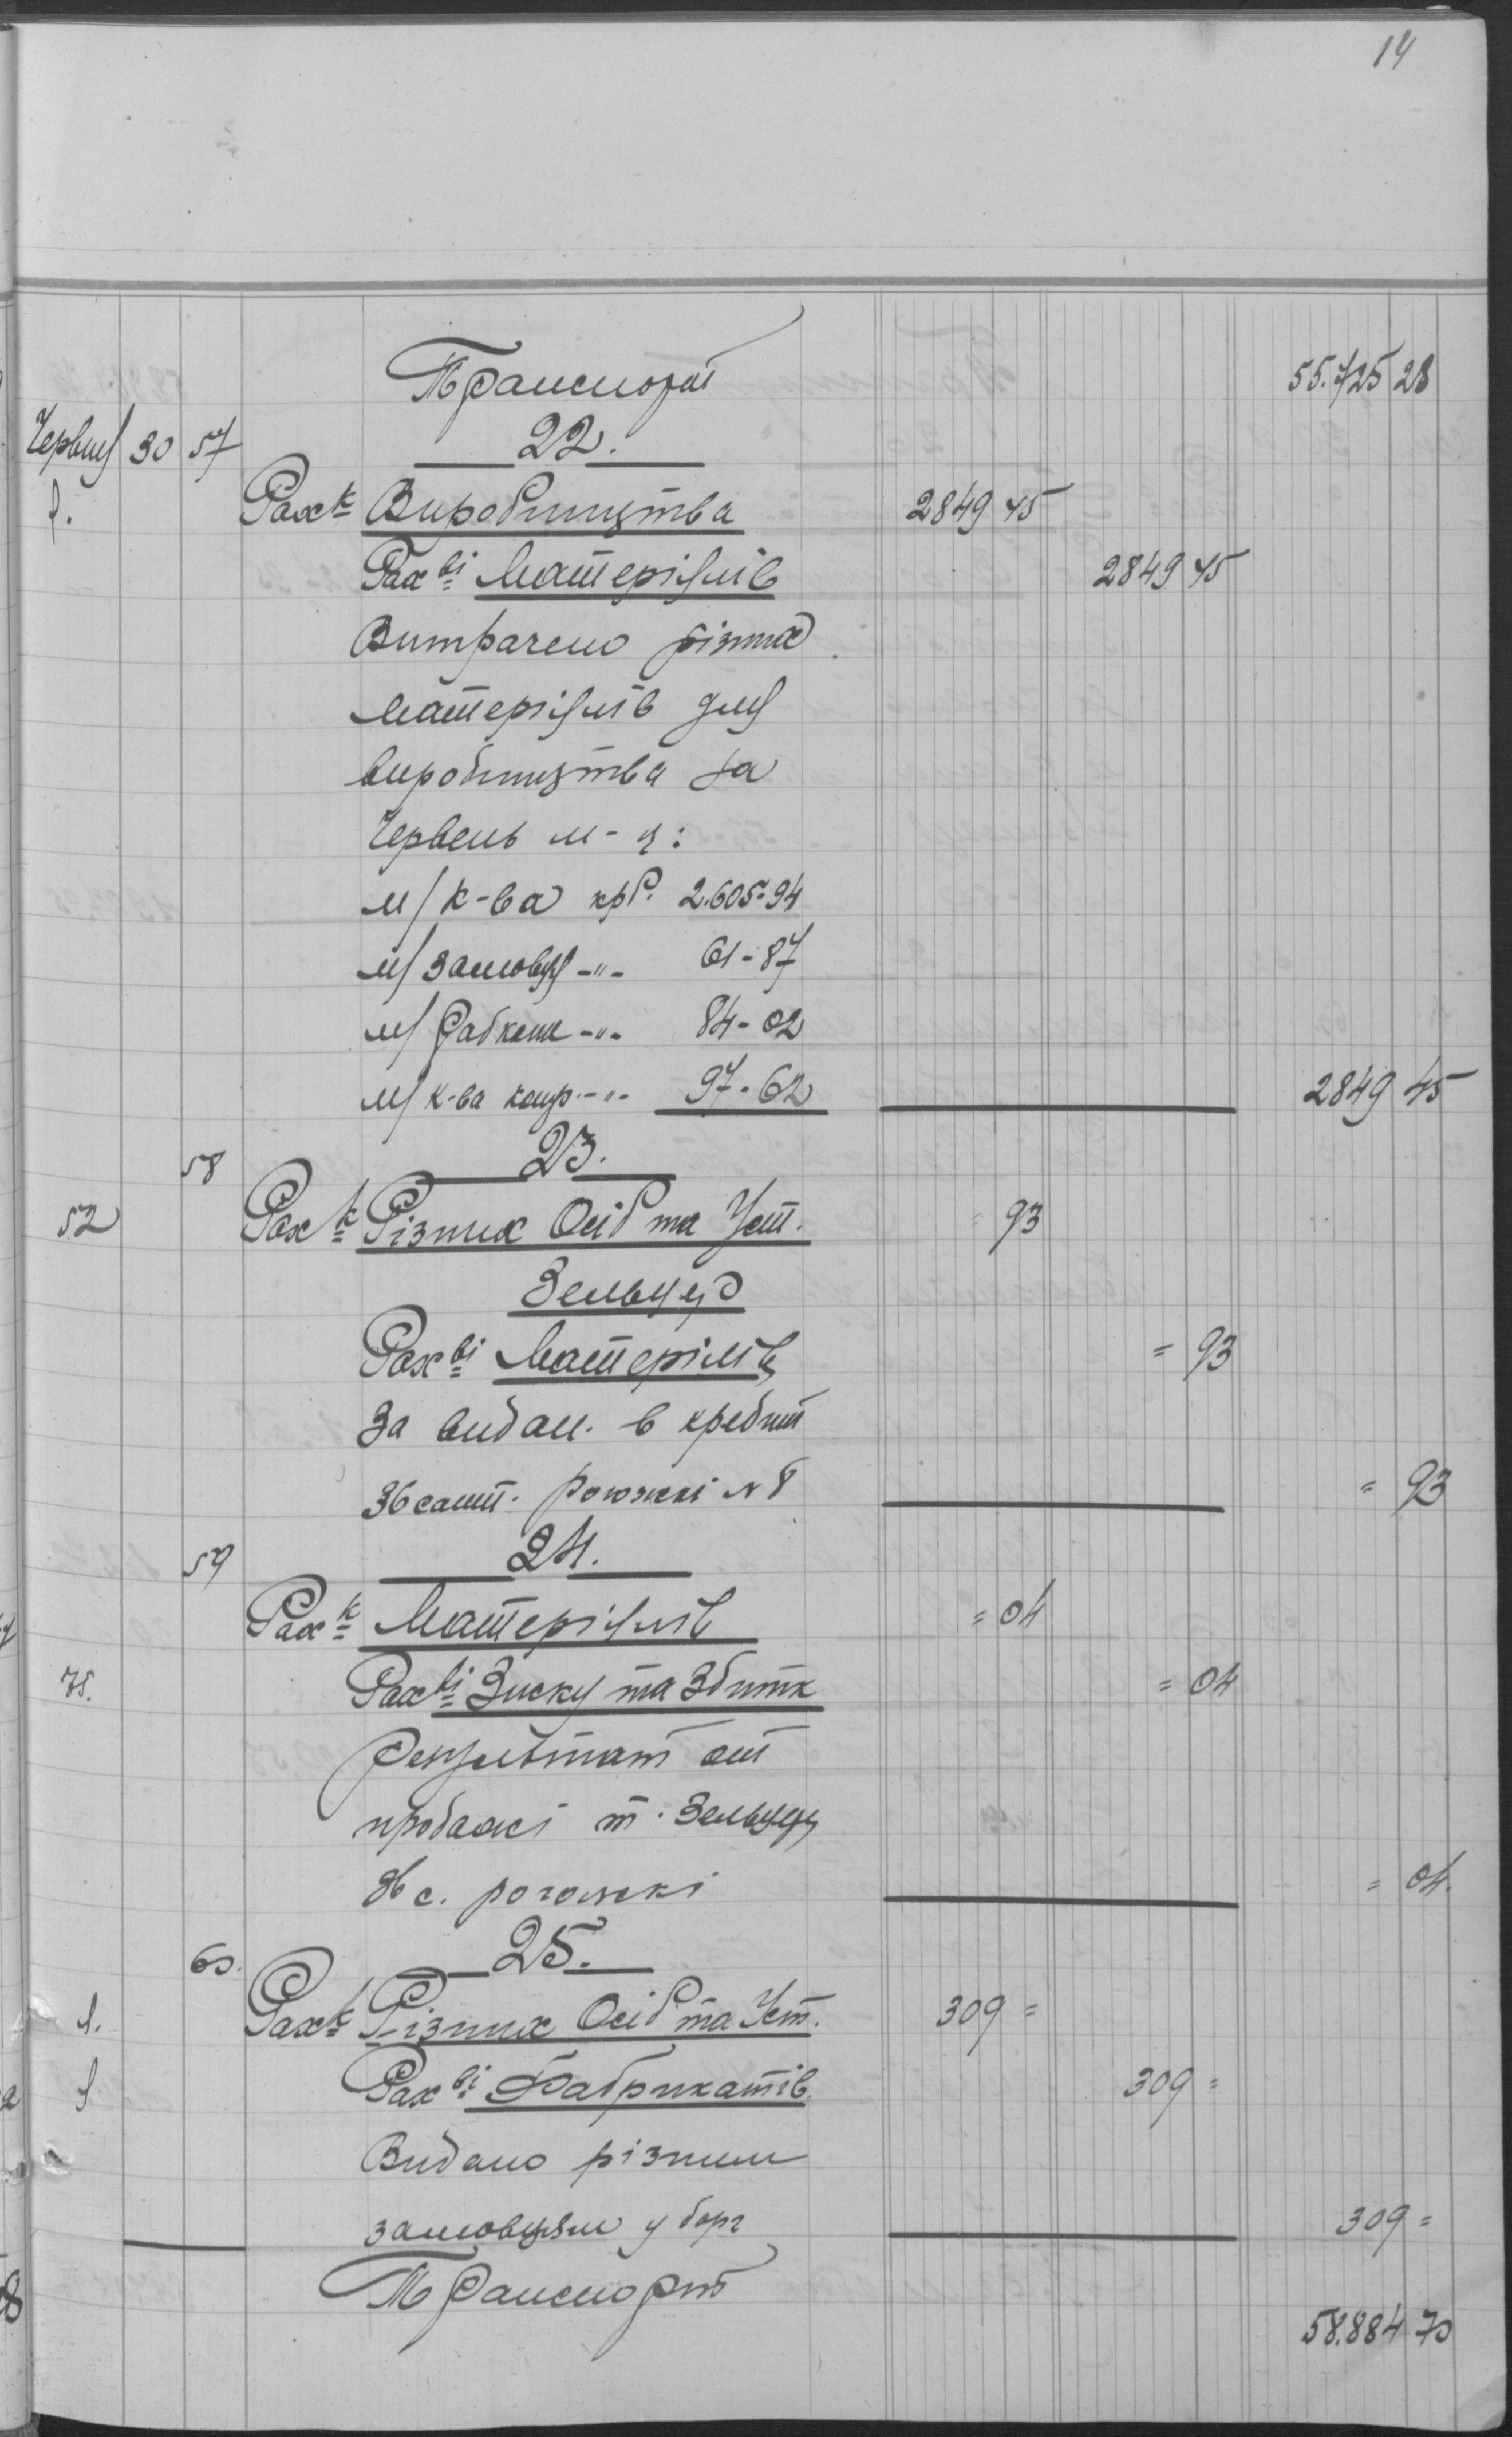 14
Транспорт 55.725 28
Червня 30 57 22.
Рах-к Виробництва 2849 45
Рах-ві Матеріялів 2849 45
Витрачено різних
матеріялів для
виробництва за
Червень м-ц:
м/ к-ва крб. 2.605-94
м/ замовця -"- 61-87
м/ Рабкоми -"- 84-02
м/ к-ва -"- 97-62 2849 45
58 23.
52 Рах-к Різних Осіб та Уст. = 93
Зельцер
Рах-ві Матерілів = 93
За видан. в кредит
36 сант. рогожкі № 8 = 93
59 24.
Рах-к Матеріялів = 04
75. Рах-ві Зиску та Збитк = 04
Результат от
продажі т. Зельцеру
36 с. рогожкі = 04.
60. 25.
Рах-к Різних Осіб та Уст. 309 =
Рах-ві Фабрикатів. 309 =
Видано різним
замовцям у борг 309 =
Транспорт
58.884 70